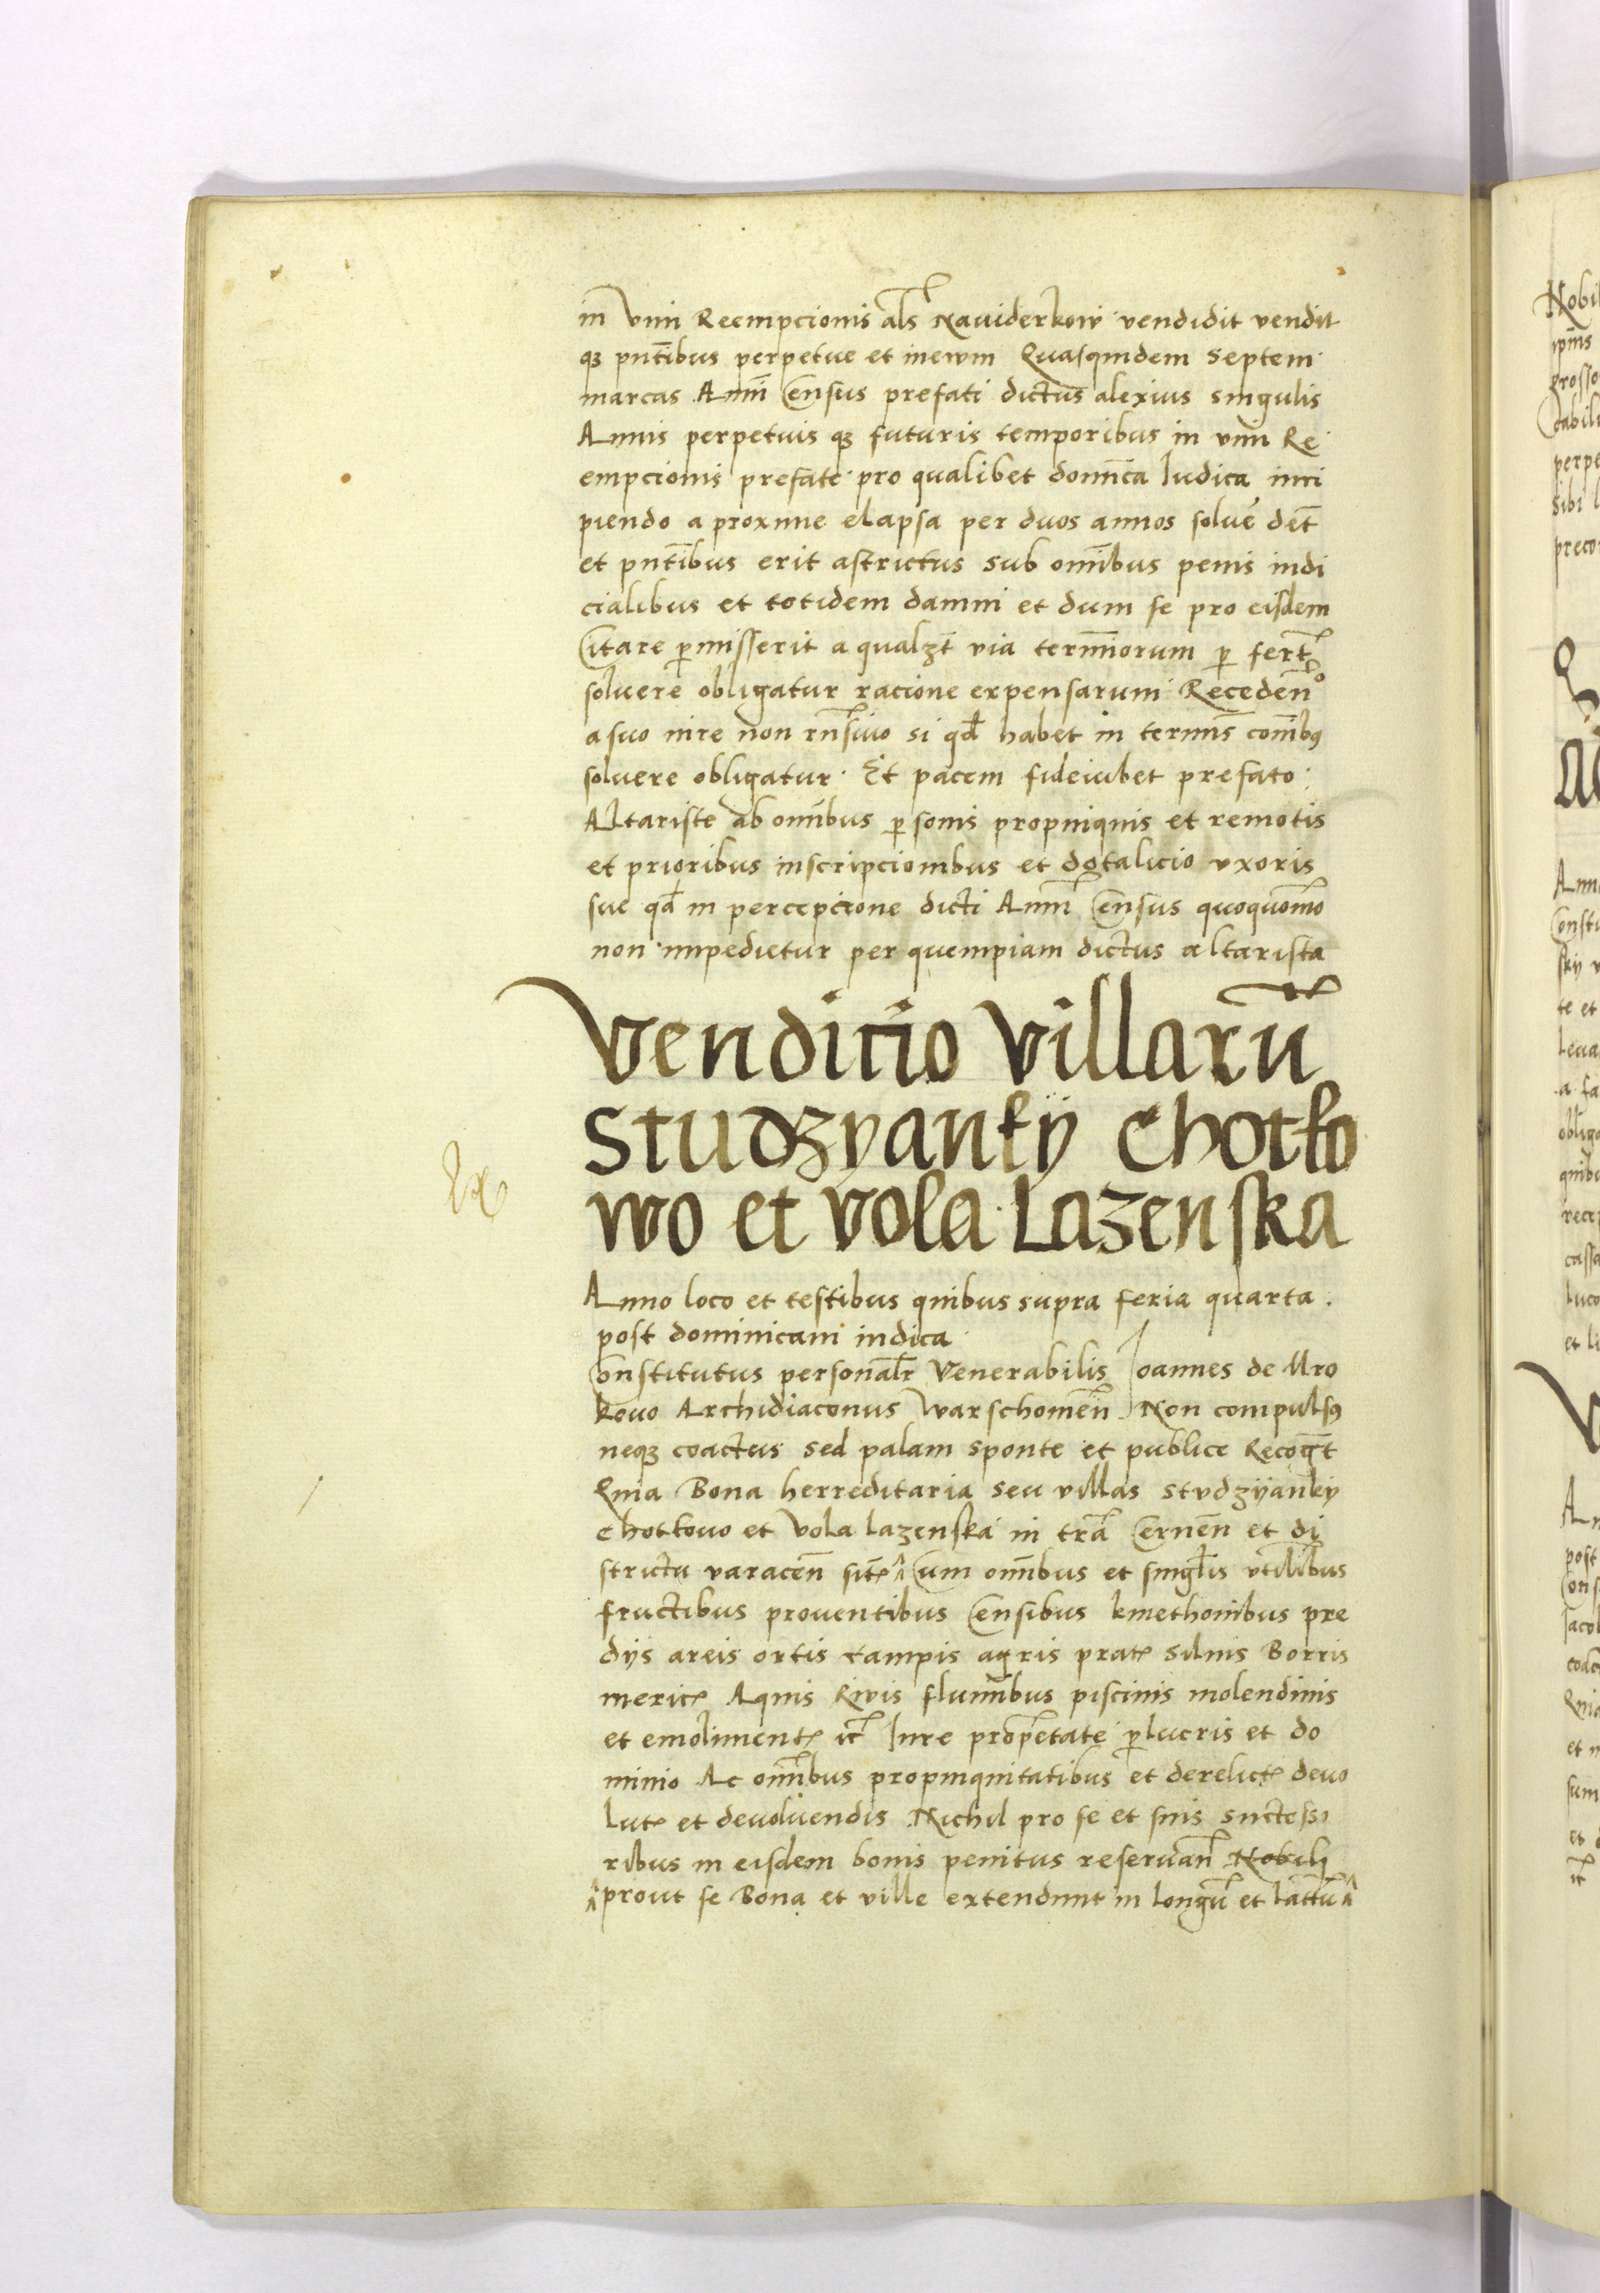 in vim Reempcionis als Naviderkow vendidit vendit
qz pntibus perpetue et in ewm Quasquidem septem
marcas Anni Census prefati dictus alexius singulis
Annis perpetuis qz futuris temporibus in vim Re
empcionis prefate pro qualibet domica Iudica inci
piendo a proxime elapsa per duos annos solue det
et pntibus erit astrictus sub omibus penis iudi
cialibus et totidem damni et dum se pro eisdem
Citare pmisserit a qualzt via terminorum p fert
soluere obligatur racione expensarum Receden
a suo iure non rnsiuo si qd habet in terminis comibus
soluere obligatur Et pacem fideiubet prefato
Altariste ab omibus psonis propinquis et remotis
et prioribus inscripcionibus et dotalicio vxoris
sue qd in percepcione dicti Annui Census quoquomo
non impedietur per quempiam dictus altarista
Venditio Villarum
Studzyanky Chotko
wo et Vola Lazenska
Anno loco et testibus quibus supra feria quarta
post dominicam iudica
Constitutus personalr Venerabilis Joannes de Mro
kouo Archidiaconus Warschouien Non compulsus
neqz coactus sed palam sponte et publice Recogt
Quia Bona herreditaria seu villas Studzyanky
Chotkouo et Vola lazenska in tra Cernen et di
strictu varacen site Cum omibus et singlis vtilibus
fructibus prouentibus Censibus kmethonibus pre
dys areis ortis campis agris prat siluis Borris
meric Aquis Riuis fluminibus piscinis molendinis
et emoliment ic Iure proprietate plucris et do
minio Ac omibus propinquitatibus et derelict deuo
lut et deuoluendis Nichil pro se et suis successo
ribus in eisdem bonis penitus reseruan Nobili
prout se Bona et ville extendunt in longu et lattu